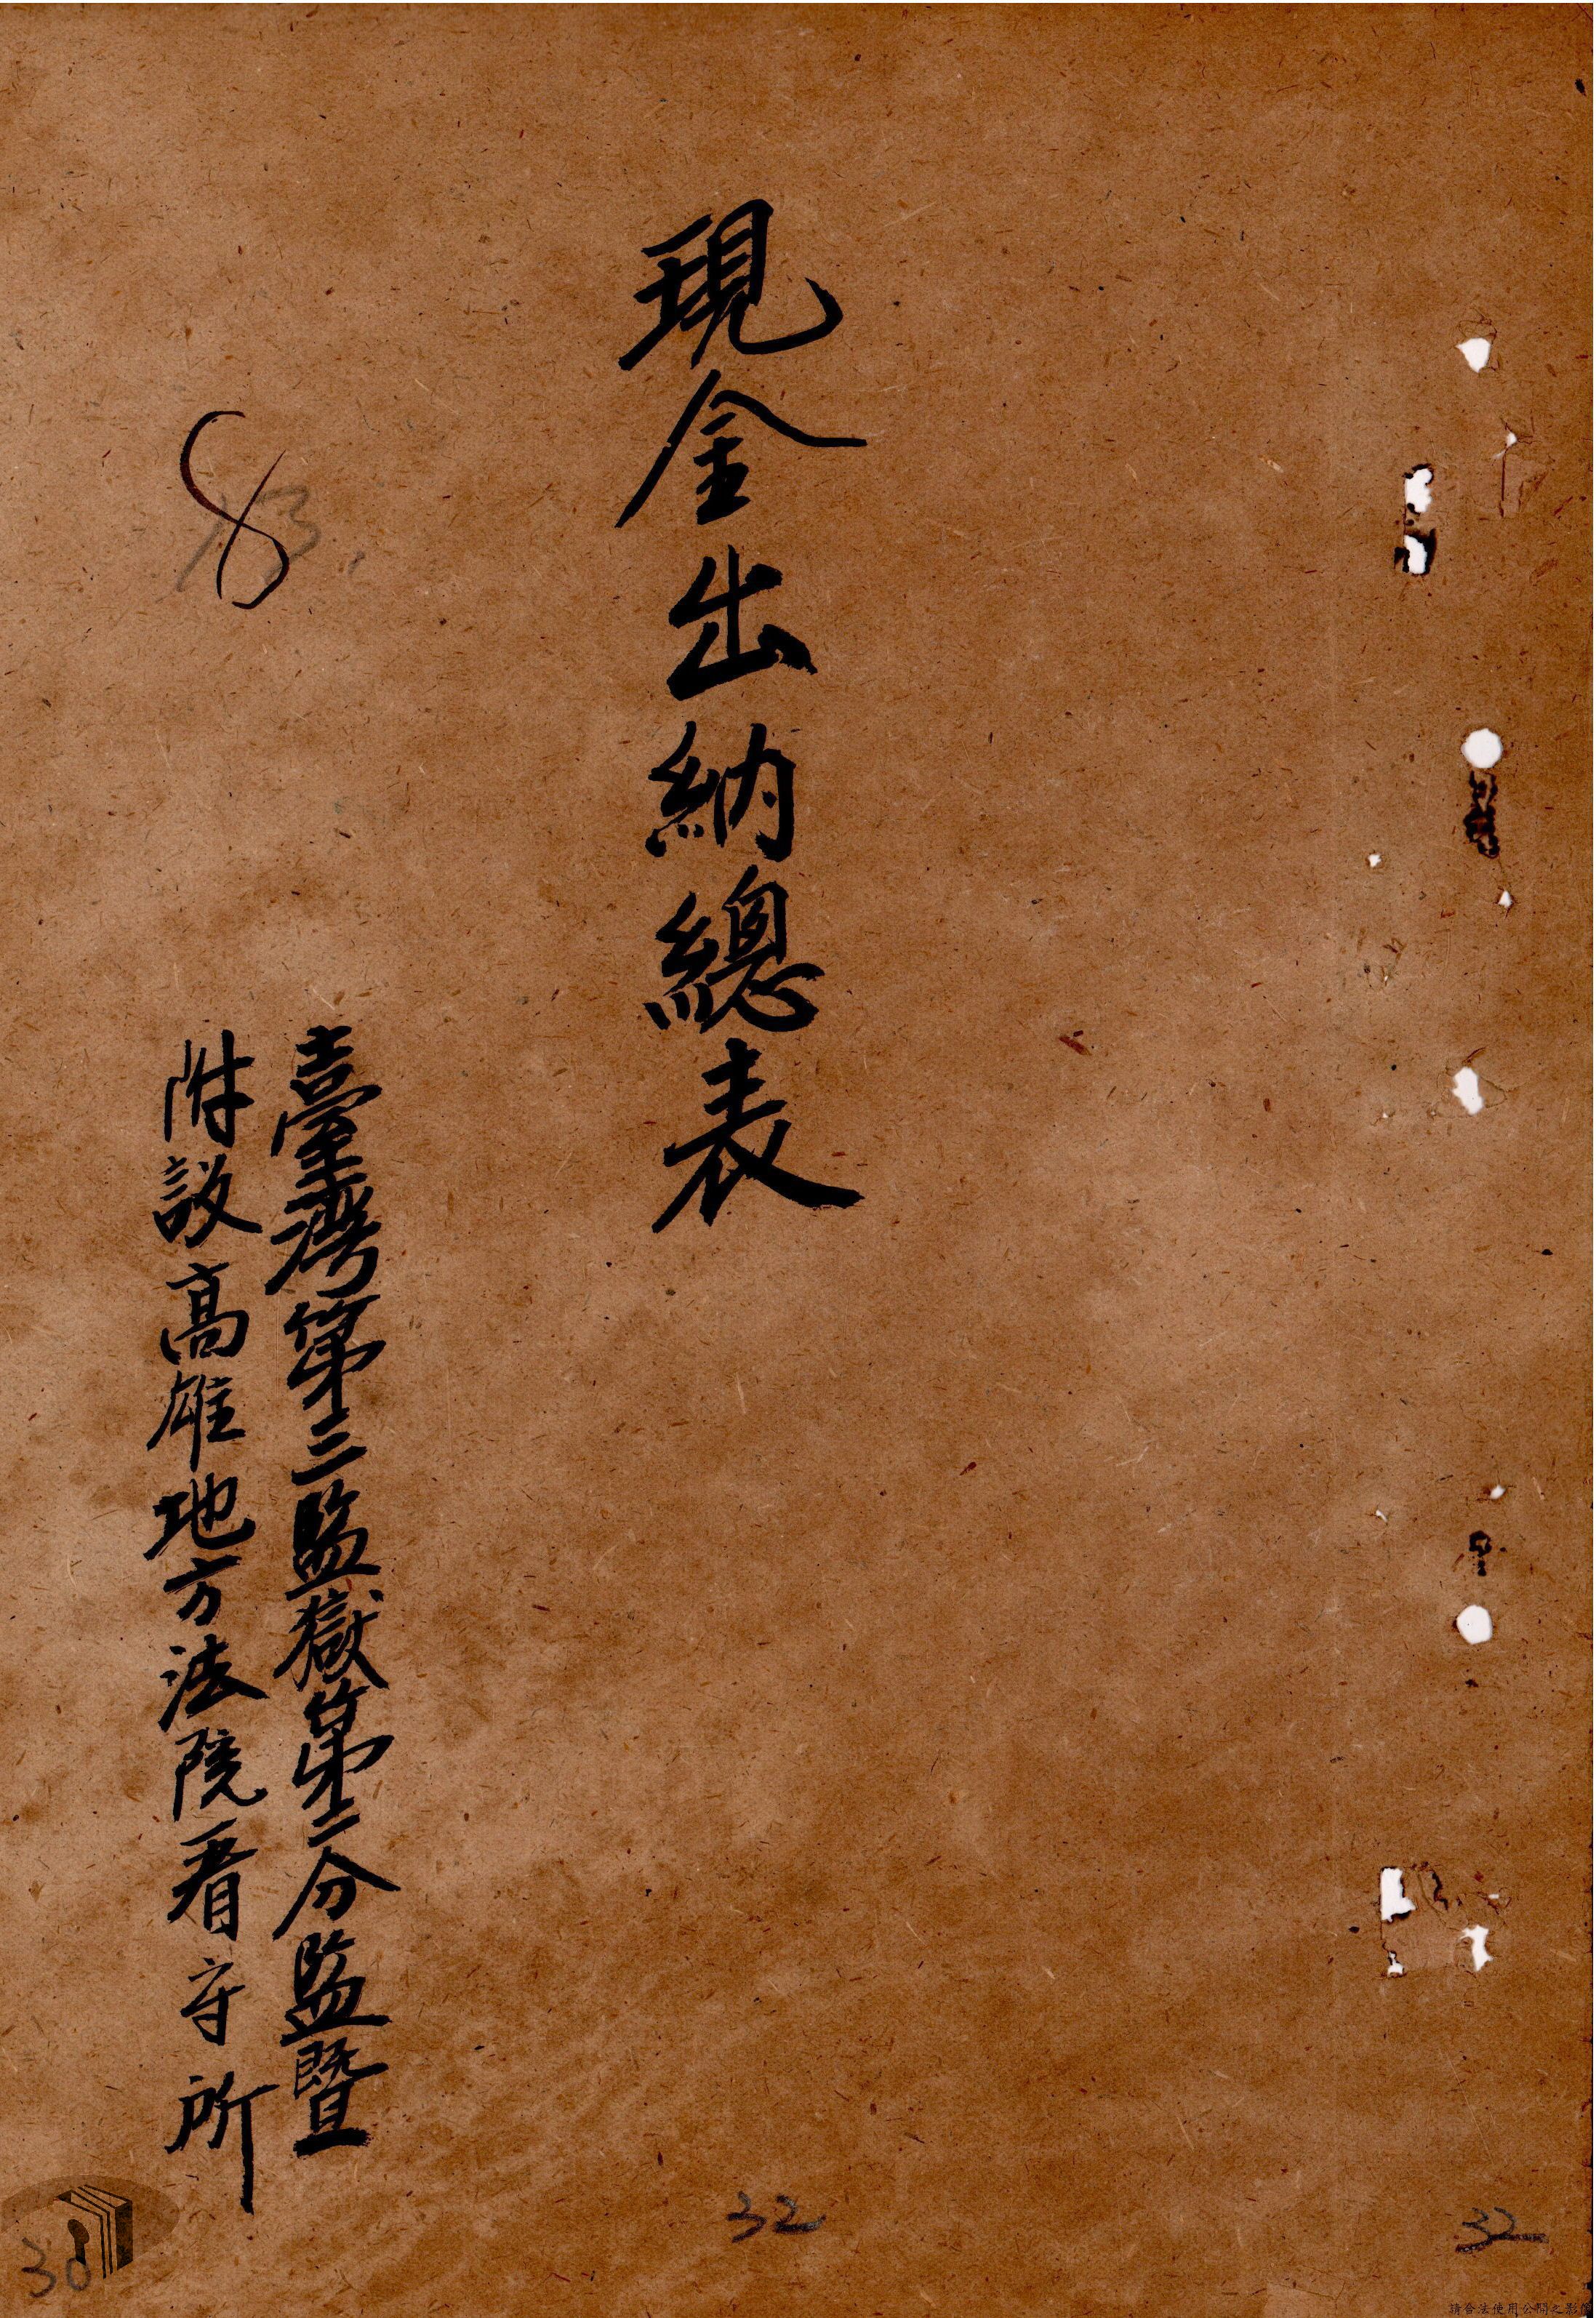 現金出納總表
臺灣第三監獄第二分監暨
附設高雄地方法院看守所
8
32
32
30
請合法使用公開之影像